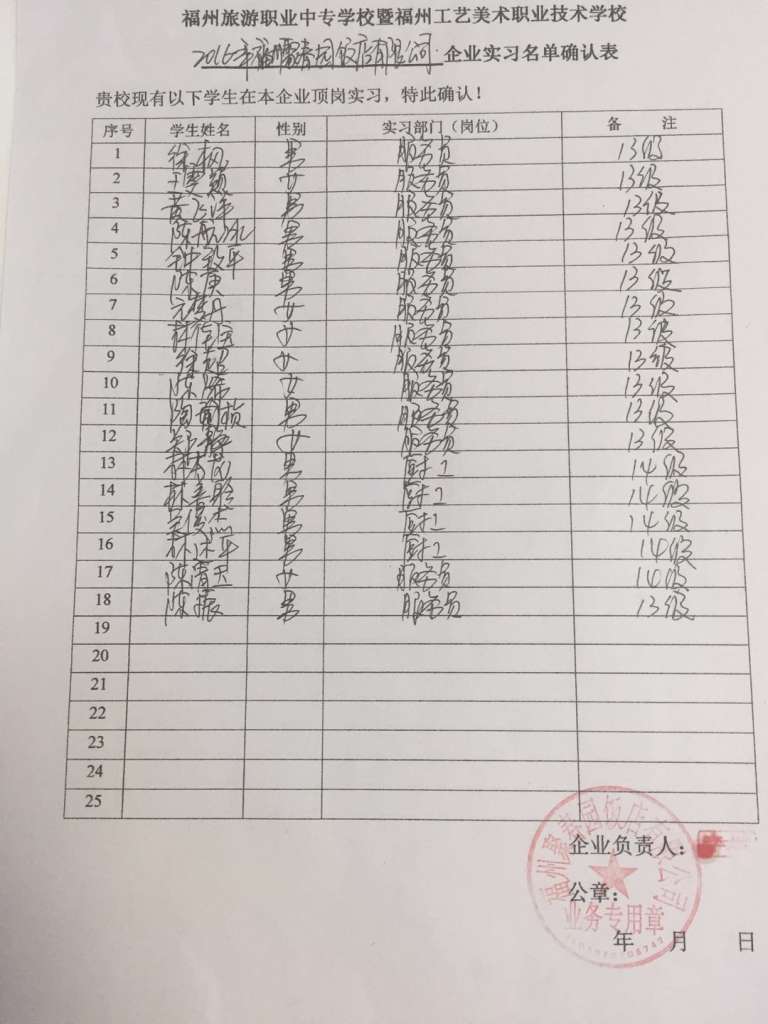 福州旅游职业中专学校暨福州工艺美术职业技术学校
2016年福州聚春园饭店有限公司 企业实习名单确认表
贵校现有以下学生在本企业顶岗实习，特此确认！
序号 学生姓名 性别 实习部门（岗位） 备 注
1 徐枫 男 服务员 13级
2 女 服务员 13级
3 黄飞洋 男 服务员 13级
4 陈 男 服务员 13级
5 钟 平 男 服务员 13级
6 陈庚 男 服务员 13级
7 女 服务员 13级
8 女 服务员 13级
9 徐超 女 服务员 13级
10 陈 女 服务员 13级
11 陶 男 服务员 13级
12 郑静 女 服务员 13级
13 林 男 厨工 14级
14 林 男 厨工 14级
15 吴俊杰 男 厨工 14级
16 林 平 男 厨工 14级
17 陈清 女 服务员 14级
18 陈振 男 服务员 13级
19
20
21
22
23
24
25
企业负责人：
公章：
年 月 日
福州聚春园饭店有限公司
业务专用章